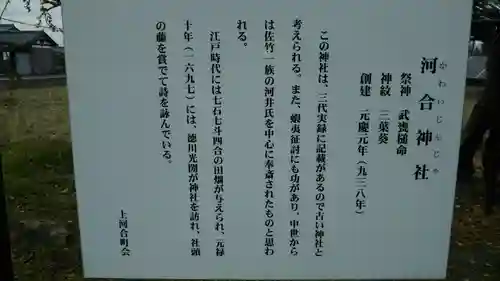 かわいじんじゃ
河合神社
祭神 武甕槌命
神紋 三葉葵
創建 元慶元年(九三八年)
この神社は、三代実録に記載があるので古い神社と
考えられる。また、蝦夷征討にも功があり、中世から
は佐竹一族の河井氏を中心に奉斎されたものと思わ
れる。
江戸時代には七石七斗四合の田畑が与えられ、元禄
十年(一六九七)には、徳川光圀が神社を訪れ、社頭
の藤を賞でて詩を詠んでいる。
上河合町会